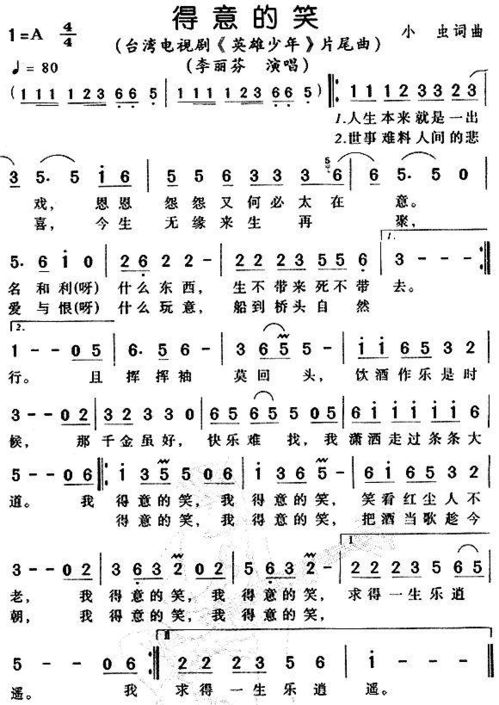 得意的笑
1=A 4/4
(台湾电视剧《英雄少年》片尾曲)
小 虫词曲
♩= 80
(李丽芬 演唱)
(111 123 66 5 | 111 123 66 5) 111233 23
1.人生本来就是一出
2.世事难料人间的悲
3 5. 5 1 6 | 5 5 6 3 3 3 5 6 | 6 5. 5 0
戏, 恩恩 怨怨又何必太在 意。
喜, 今生 无缘来生再 聚,
1.
5. 6 1 0 | 2 6 2 2 - | 2 2 2 3 5 5 6 | 3 - - -
名和利(呀) 什么东西, 生不带来死不带 去。
爱与恨(呀) 什么玩意, 船到桥头自然
2.
1 - - 0 5 | 6. 5 6 - | 3 6 5 5 - | 1 1 6 5 3 2
行。 且 挥挥袖 莫回头, 饮酒作乐是时
3 - - 0 2 | 3 2 3 3 0 | 6 5 6 5 0 5 | 6 1 1 1 1 1 6
候, 那 千金虽好, 快乐难 找,我 潇洒走过条条大
5 - - 0 6 1 3 5 5 0 6 | 1 3 6 5 - | 5 6 5 3 2 2
道。 我 得意的笑,我 得意的笑, 笑看红尘人不
得意的笑,我 得意的笑, 把酒当歌趁今
1
3 - - 0 2 | 3 6 3 2 0 2 | 3 6 3 2 - | 2 2 2 3 5 6 5
老, 我 得意的笑,我 得意的笑, 求得一生乐逍
朝, 我 得意的笑,我 得意的笑,
5 - - 0 6 2 2 2 3 5 6 | 1 - - -
遥。 我 求得一生乐逍 遥。